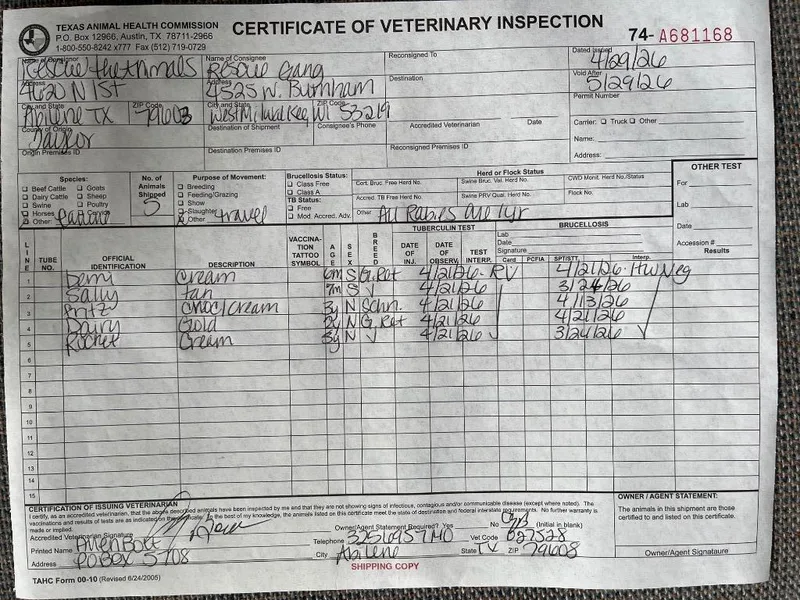 TEXAS ANIMAL HEALTH COMMISSION
P.O. Box 12966, Austin, TX 78711-2966
1-800-550-8242 x777 Fax (512) 719-0729
CERTIFICATE OF VETERINARY INSPECTION
74- A681168
Name of Consignor Rescue the Animals
Address 4620 N 1st
City and State Abilene TX ZIP Code 79603
County of Origin Taylor
Origin Premises ID
Name of Consignee Rescue Gang
Address 4525 W. Burnham
City and State West Milwalkee, WI ZIP Code 53219
Destination of Shipment Consignee's Phone
Destination Premises ID
Reconsigned To
Destination
Accredited Veterinarian Date
Reconsigned Premises ID
Dated Issued 4/29/26
Void After 5/29/26
Permit Number
Carrier: Truck Other
Name:
Address:
Species:
Beef Cattle Goats
Dairy Cattle Sheep
Swine Poultry
Horses
Other:
No. of Animals Shipped 5
Purpose of Movement:
Breeding
Feeding/Grazing
Show
Slaughter
Other travel
Brucellosis Status:
Class Free
Class A
TB Status:
Free
Mod. Accred. Adv.
Herd or Flock Status
Cert. Bruc. Free Herd No. Swine Bruc. Val. Herd No. CWD Monit. Herd No./Status
Accred. TB Free Herd No. Swine PRV Qual. Herd No. Flock No.
Other All Rabies are 1yr
OTHER TEST
For
Lab
Date
Accession #
Results
LINE TUBE NO. OFFICIAL IDENTIFICATION DESCRIPTION VACCINATION TATTOO SYMBOL AGE SEX BREED
TUBERCULIN TEST
DATE OF INJ. DATE OF OBSERV. TEST INTERP.
BRUCELLOSIS
Lab
Date
Signature
Card PCFIA SPT/STT Interp.
1 Demi Cream 6m S G. Ret 4/21/26 - RV 4/21/26 - HW Neg
2 Sally tan 7m S √ 4/21/26 3/24/26
3 Fritz Choc/Cream 3y N Schn. 4/21/26 4/13/26
4 Dairy Gold 2y N G. Ret 4/21/26 4/21/26
5 Rocket Cream 3y N √ 4/21/26 √ 3/24/26 √
6
7
8
9
10
11
12
13
14
15
CERTIFICATION OF ISSUING VETERINARIAN
I certify, as an accredited veterinarian, that the above described animals have been inspected by me and that they are not showing signs of infectious, contagious and/or communicable disease (except where noted). The vaccinations and results of tests are as indicated on the certificate. To the best of my knowledge, the animals listed on this certificate meet the state of destination and federal interstate requirements. No further warranty is made or implied.
Accredited Veterinarian Signature
Printed Name
Address PO Box 5708
Owner/Agent Statement Required? Yes No (Initial in blank)
Telephone
Vet Code 027528
City Abilene State TX ZIP 79608
OWNER / AGENT STATEMENT:
The animals in this shipment are those certified to and listed on this certificate.
Owner/Agent Signataure
TAHC Form 00-10 (Revised 6/24/2005)
SHIPPING COPY